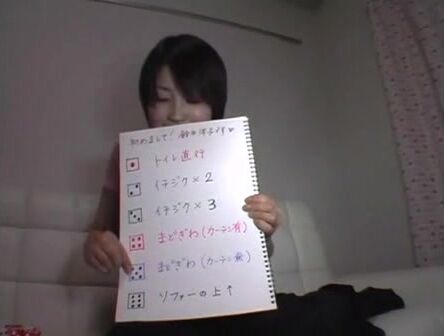 初めまして！鈴木洋子です
トイレ直行
イチジク×2
イチジク×3
まどぎわ(カーテン有)
まどぎわ(カーテン無)
ソファーの上↑